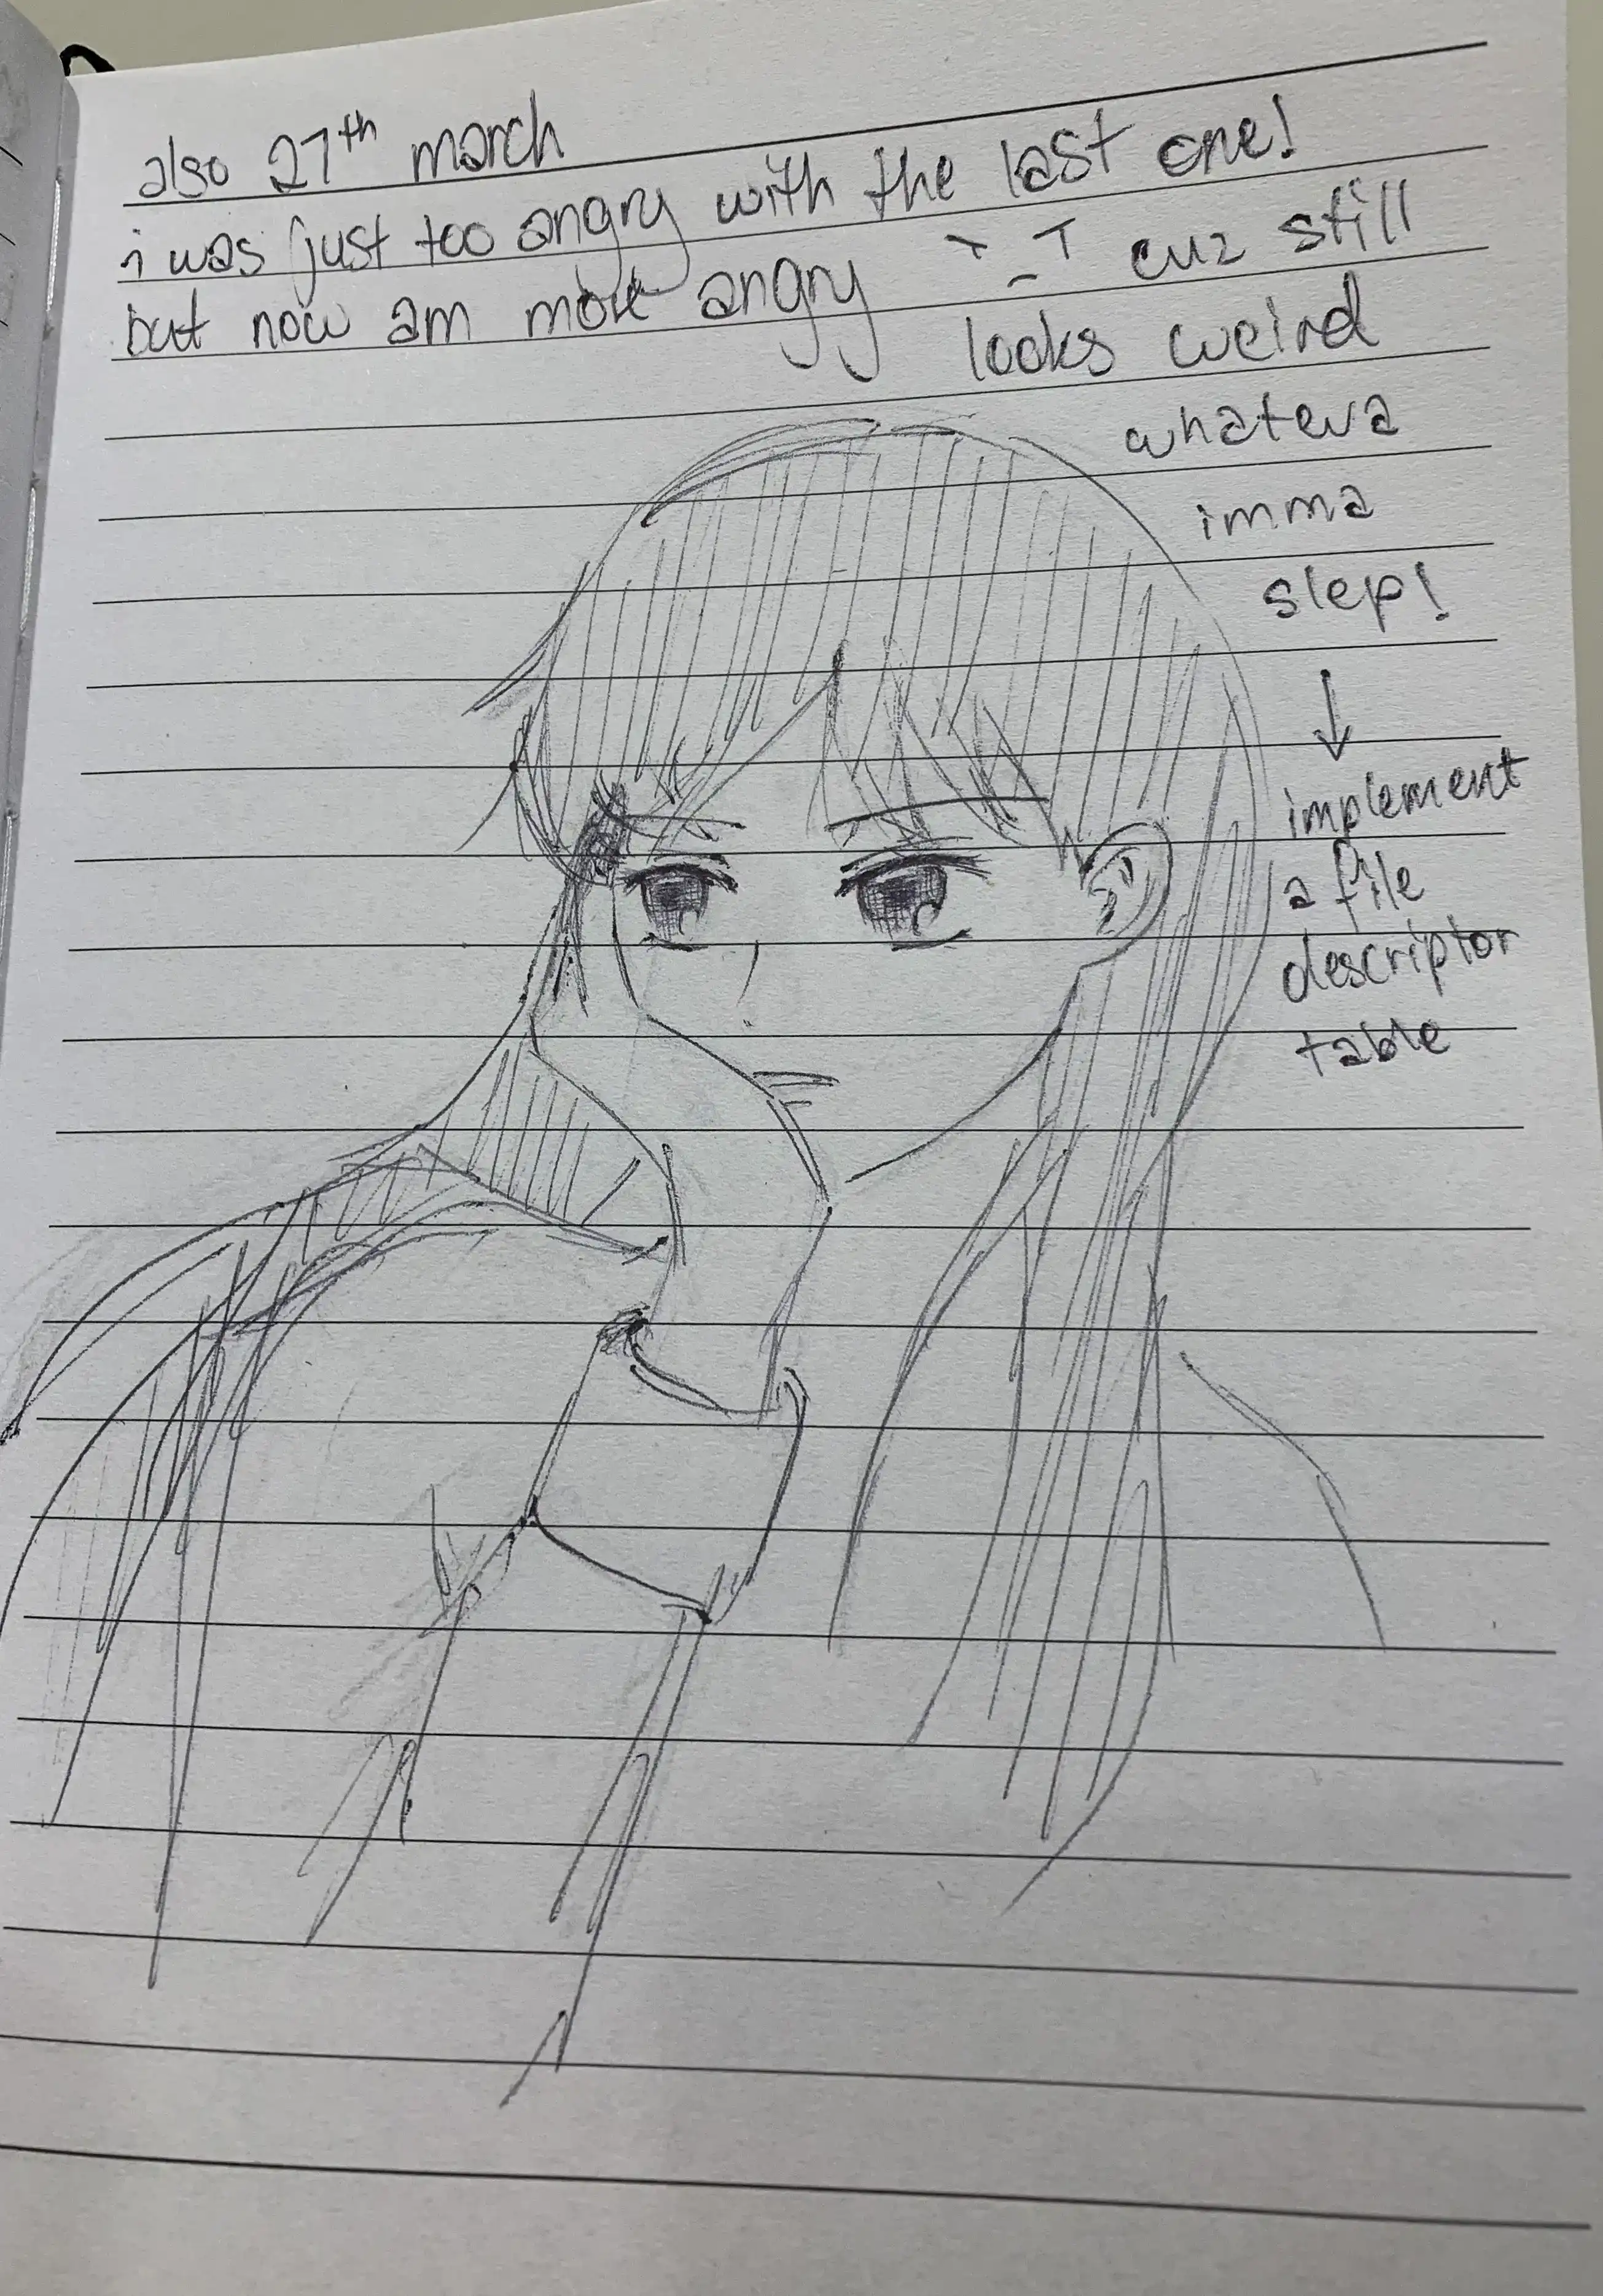 also 27th march
i was just too angry with the last one!
but now am more angry `-T cuz still
looks weird
whateva
imma
slep!
↓
implement
a file
descriptor
table